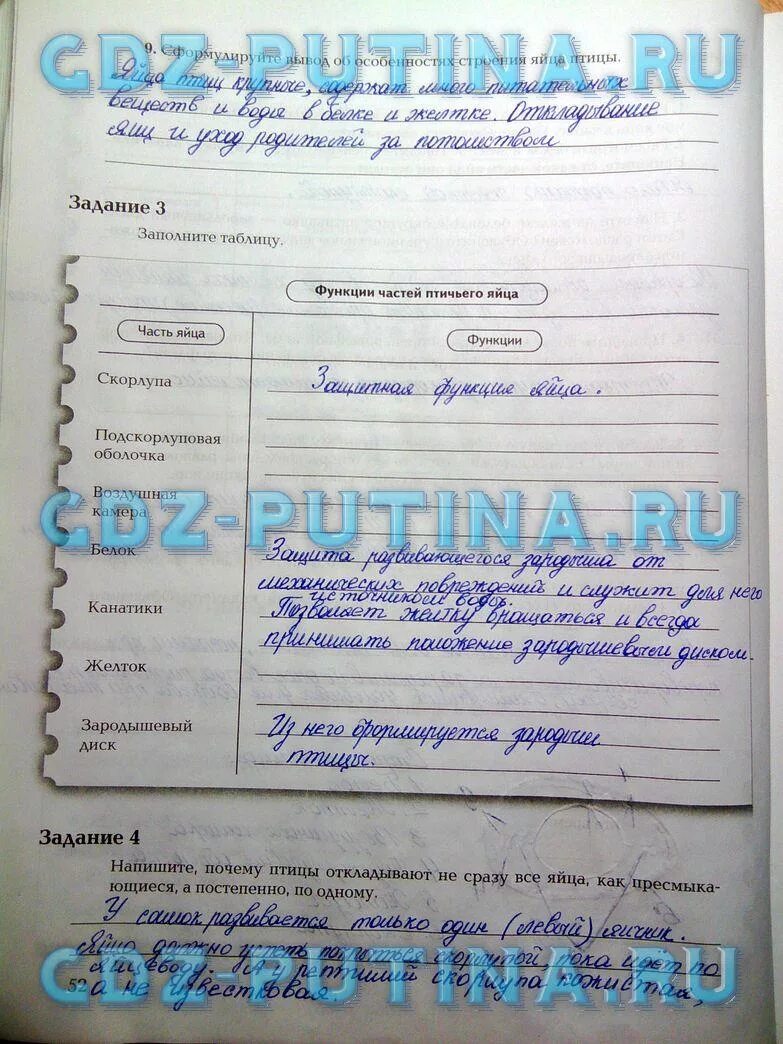 GDZ-PUTINA.RU
9. Сформулируйте вывод об особенностях строения яйца птицы.
Яйца птиц крупные, содержат много питательных
веществ и воды в белке и желтке. Откладывание
яиц и уход родителей за потомством
Задание 3
Заполните таблицу.
Функции частей птичьего яйца
Часть яйца
Функции
Скорлупа
Защитная функция яйца.
Подскорлуповая
оболочка
Воздушная
камера
GDZ-PUTINA.RU
Белок
Защита развивающегося зародыша от
механических повреждений и служит для него
источником воды.
Канатики
Позволяет желтку вращаться и всегда
принимать положение зародышевым диском.
Желток
Зародышевый
диск
Из него формируется зародыш
птицы.
Задание 4
Напишите, почему птицы откладывают не сразу все яйца, как пресмыка-
ющиеся, а постепенно, по одному.
У самок развивается только один (левый) яичник.
Яйцо должно успеть покрыться скорлупой, пока идёт по
яйцеводу. А у рептилий скорлупа кожистая,
а не известковая.
52
GDZ-PUTINA.RU